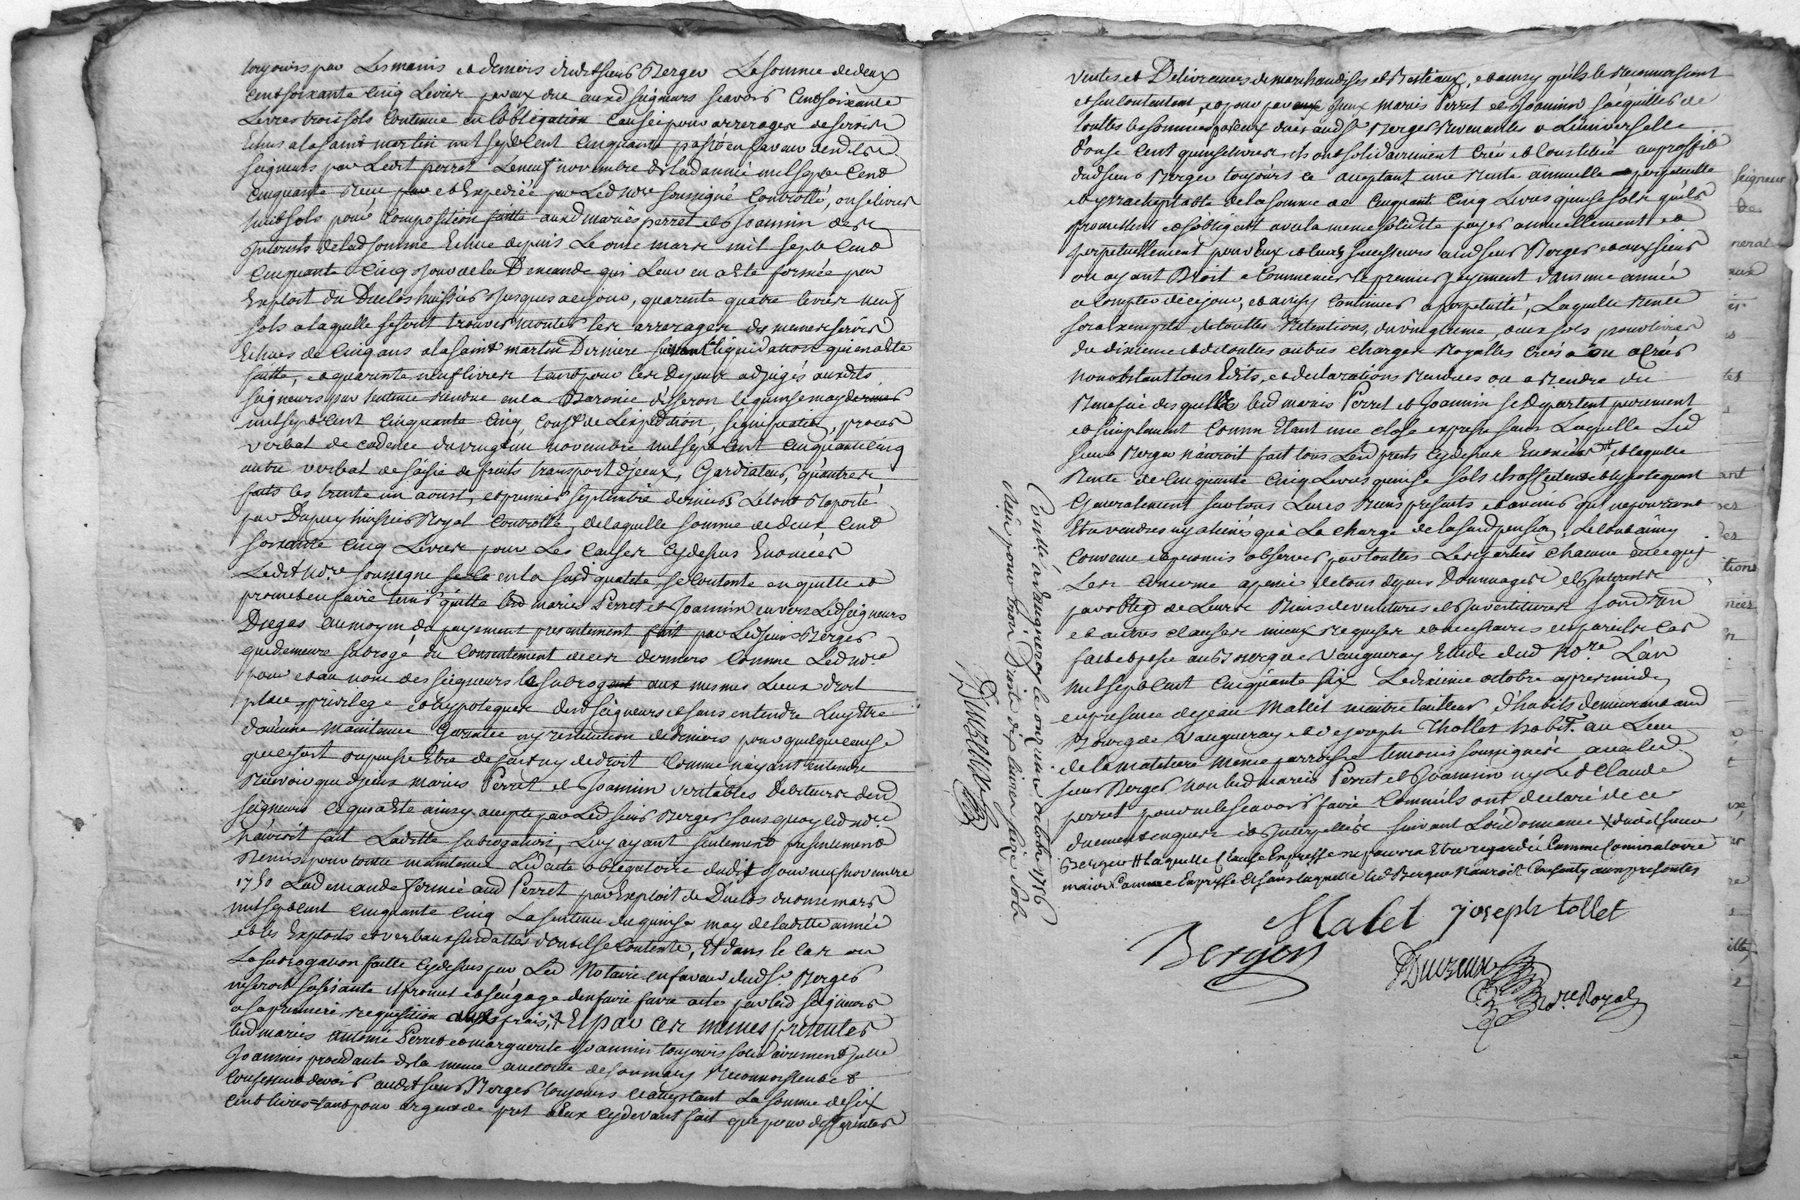 toujours par Les mains et deniers dudit sieur Berger La somme de deux
Cent soixante Cinq Livres par eux due auxd seigneurs scavoir Cent soixante
Livres trois sols Contenue en L'obligation Causée pour arrerages de servis
Echus a la saint martin mil sept Cent Cinquante passée en faveur desdits
seigneurs par Ledit perret Le neuf novembre de lad année mil sept Cent
Cinquante Receue et Expediée par Led nore soussigné Controllé, onse livres
huit sols pour Composition faitte auxd mariés perret et Joannin des
Interests de lad somme Echue depuis Le onse mars mil sept Cent
Cinquante Cinq jour de la Demande qui Leur en a été formée par
Exploit du Duclos huissier jusques a ce jour, quarente quatre livres neuf
sols a laquelle se sont trouvés monter les arrerages des memes servis
Echues de Cinq ans a la saint martin Derniere suivant liquidation qui en a été
faitte, et quarente neuf livres tant pour les Depens adjugés auxdits
seigneurs par sentence Rendue en la Baronie d'Iseron le quinse may
mil sept Cent Cinquante Cinq, Coust de L'expedition, signification, procès
verbal de Cadence du vingt un novembre mil sept Cent Cinquante Cinq
autre verbal de saisie de fruits transport d'jceux, Gardiateur, qu'autres
faits les trente un aoust, et premier septembre derniers Le tout Raporté
par Dupuy huissier Royal Controllé, de laquelle somme de deux Cent
soixante Cinq Livres pour Les Causes Cydessus Enoncées
Ledit Nore soussigné en la susd qualité se Contente en quitte et
promet en faire tenir quitte Led mariés Perret et Joannin envers Led seigneurs
Dregas au moyen du payement presentement fait par Led sieur Berger
qui demeure subrogé du Consentement de ces derniers Comme Led nore
pour et au nom des seigneurs le subroge aux mesmes Lieux droit
place, privilege et hypoteques desd seigneurs et sans entendre Luy Etre
d'aucune maintenue Garantie ny restitution de deniers pour quelque Cause
que ce soit ou puisse Etre de fait ny de droit Comme n'ayant entendre
Recevoir que d'jceux mariés Perret et Joannin veritables debiteurs desd
seigneurs Ce qui a été ainsy accepté par Led sieur Berger sans quoy led nore
n'auroit fait Laditte subrogation, Luy ayant seulement presentement
Remis pour toute maintenue Led acte obligatoire dudit jour neuf novembre
1750 La demande formée aud Perret par Exploit de Duclos du onse mars
mil sept Cent Cinquante Cinq La sentence du quinse may de laditte année
et les Exploits et verbaux susdattés dont il se Contente, Et dans le Cas ou
La subrogation faitte Cydessus par Led Notaire en faveur dudt sr Berger
ne seroit suffisante il promet et s'engage d'en faire faire actes par lesd seigneurs
a sa premiere requisition frais, Et par ces mémes presentes
Led mariés antoine Perret et marguerite Joannin toujours solidairement Jaditte
Joannin procedante de la meme authorité de son mary Reconnoissent et
Confessent devoir audit sieur Berger toujours ce acceptant La somme de six
Cent livres tant pour argent de pret a Eux Cydevant fait que pour differentes
ventes et Délivrances de marchandises et Besteaux, et ainsy qu'ils le Reconnoissent
et s'en Contentent, et pour par eux jceux mariés Perret et Joannin s'acquitter de
touttes les sommes par Eux dues aud sr Berger Revenantes a L'universelle
d'onse Cent quinse livres ils ont solidairement Créé et Constitué au proffit
dud sieur Berger toujours ce acceptant une Rente annuelle perpetuelle
et jrracheptable de la somme de Cinquante Cinq Livres quinse sols qu'ils
promettent et s'obligent avec la meme solidité payer annuellement et
perpetuellement pour Eux et leurs successeurs aud sieur Berger et aux siens
ou ayant Droit a Commencer le premier payement dans une année
a Compter de ce jour, et ainsy Continuer a perpetuité, Laquelle Rente
sera exempte de touttes Retentions, du vingtieme, deux sols pour livres
du dixieme et de touttes autres charges Royalles Créés ou a Créer
nonobstant tous Edits, et declarations Rendues ou a Rendre du
Benefice desquelles Led mariés Perret et Joannin se departent purement
et simplement Comme Etant une close expresse sans Laquelle Led
sieur Berger n'auroit fait tous Lesd prets Cydessus Enoncés # et laquelle
Rente de Cinquante Cinq Livres quinse sols ils assoient et hypotequent
Generalement sur tous Leurs Biens presents et avenir qui ne pourront
Etre vendus ny alienés qu'a La charge de la susd pension, Le tout ainsy
Convenu et promis observer par touttes Les parties chacune en ce qui
Les Concerne a peine de tous depens Dommages et Interests
par obligon de Leurs Biens devestitures et Investitures soumon Ron
et autres clauses mieux Requises et necessaires en pareils Cas
fait et passé au Bourg de Vaugneray Etude dud Nore L'an
mil sept Cent Cinquante six Le dixieme octobre apres midy
en presence de jean Mallet maitre tailleur d'habits demeurant aud
Bourg de Vaugneray et de joseph Thollet habit. au Lieu
de la Maletiere meme parroisse temoins soussignés avec led
sieur Berger non led mariés Perret et Joannin ny Led Claude
perret pour ne le scavoir faire Comme ils ont declaré de ce
duement enquis et Interpellés suivant L'ordonnance X dudit sieur
Berger # Laquelle Clause Expresse ne pourra Etre regardée Comme Cominatoire
mais Comme Expresse Et sans laquelle led Berger n'auroit Consenty aux presentes
Malet joseph tollet
Berger
Ducreux
Nore Royal
Conllé a Vaugneray le onzieme octobre 1756
Reçu pour tous Droits dix livres seize sols
Ducreux